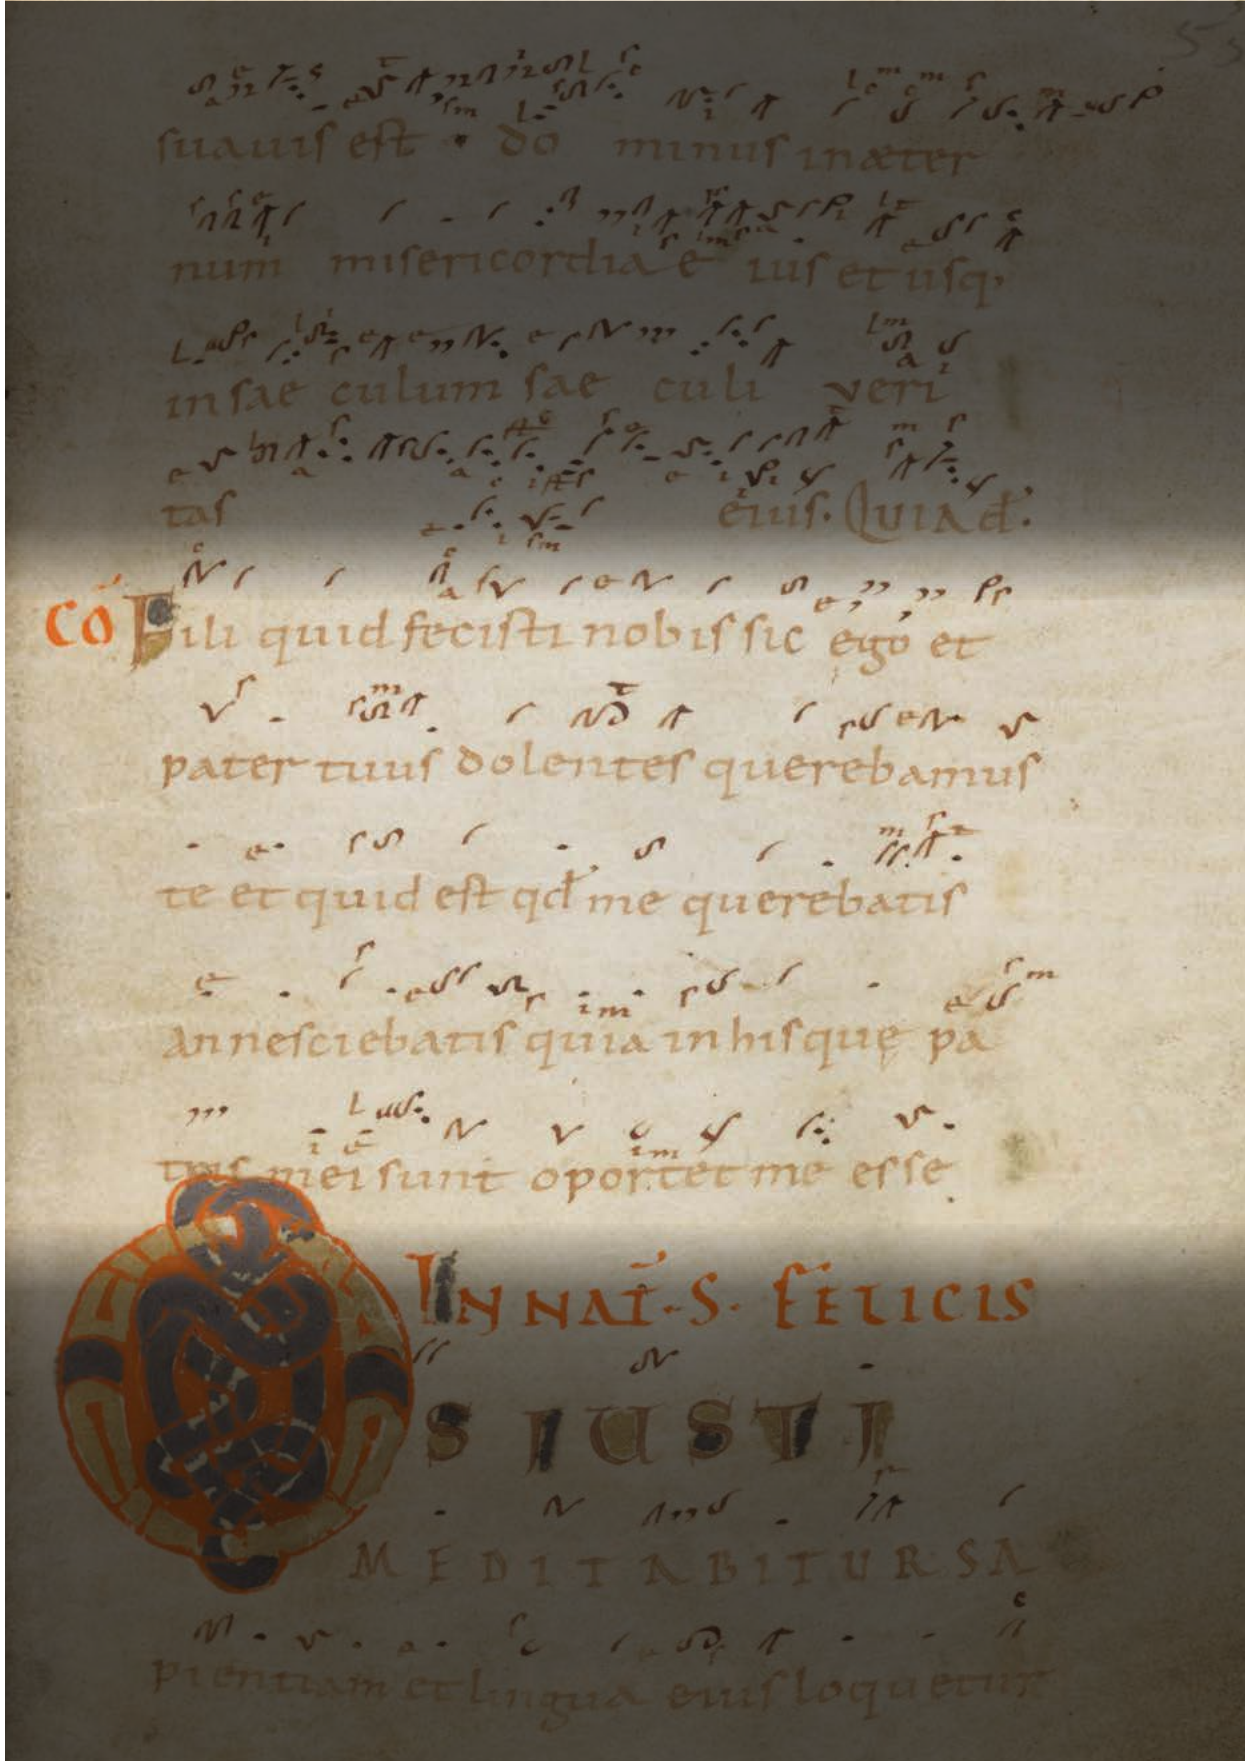 suauis est · do minus in æter
num misericordia e ius et usq;
in sae culum sae culi veri
tas eius. Quia d̄.
CŌ Fili quid fecisti nobis sic ego et
pater tuus dolentes querebamus
te et quid est qđ me querebatis
an nesciebatis quia in his quę pa
tris mei sunt oportet me esse
IN NAT̄. S. FELICIS
OS JUSTI
MEDITABITUR SA
pientiam et lingua eius loquetur